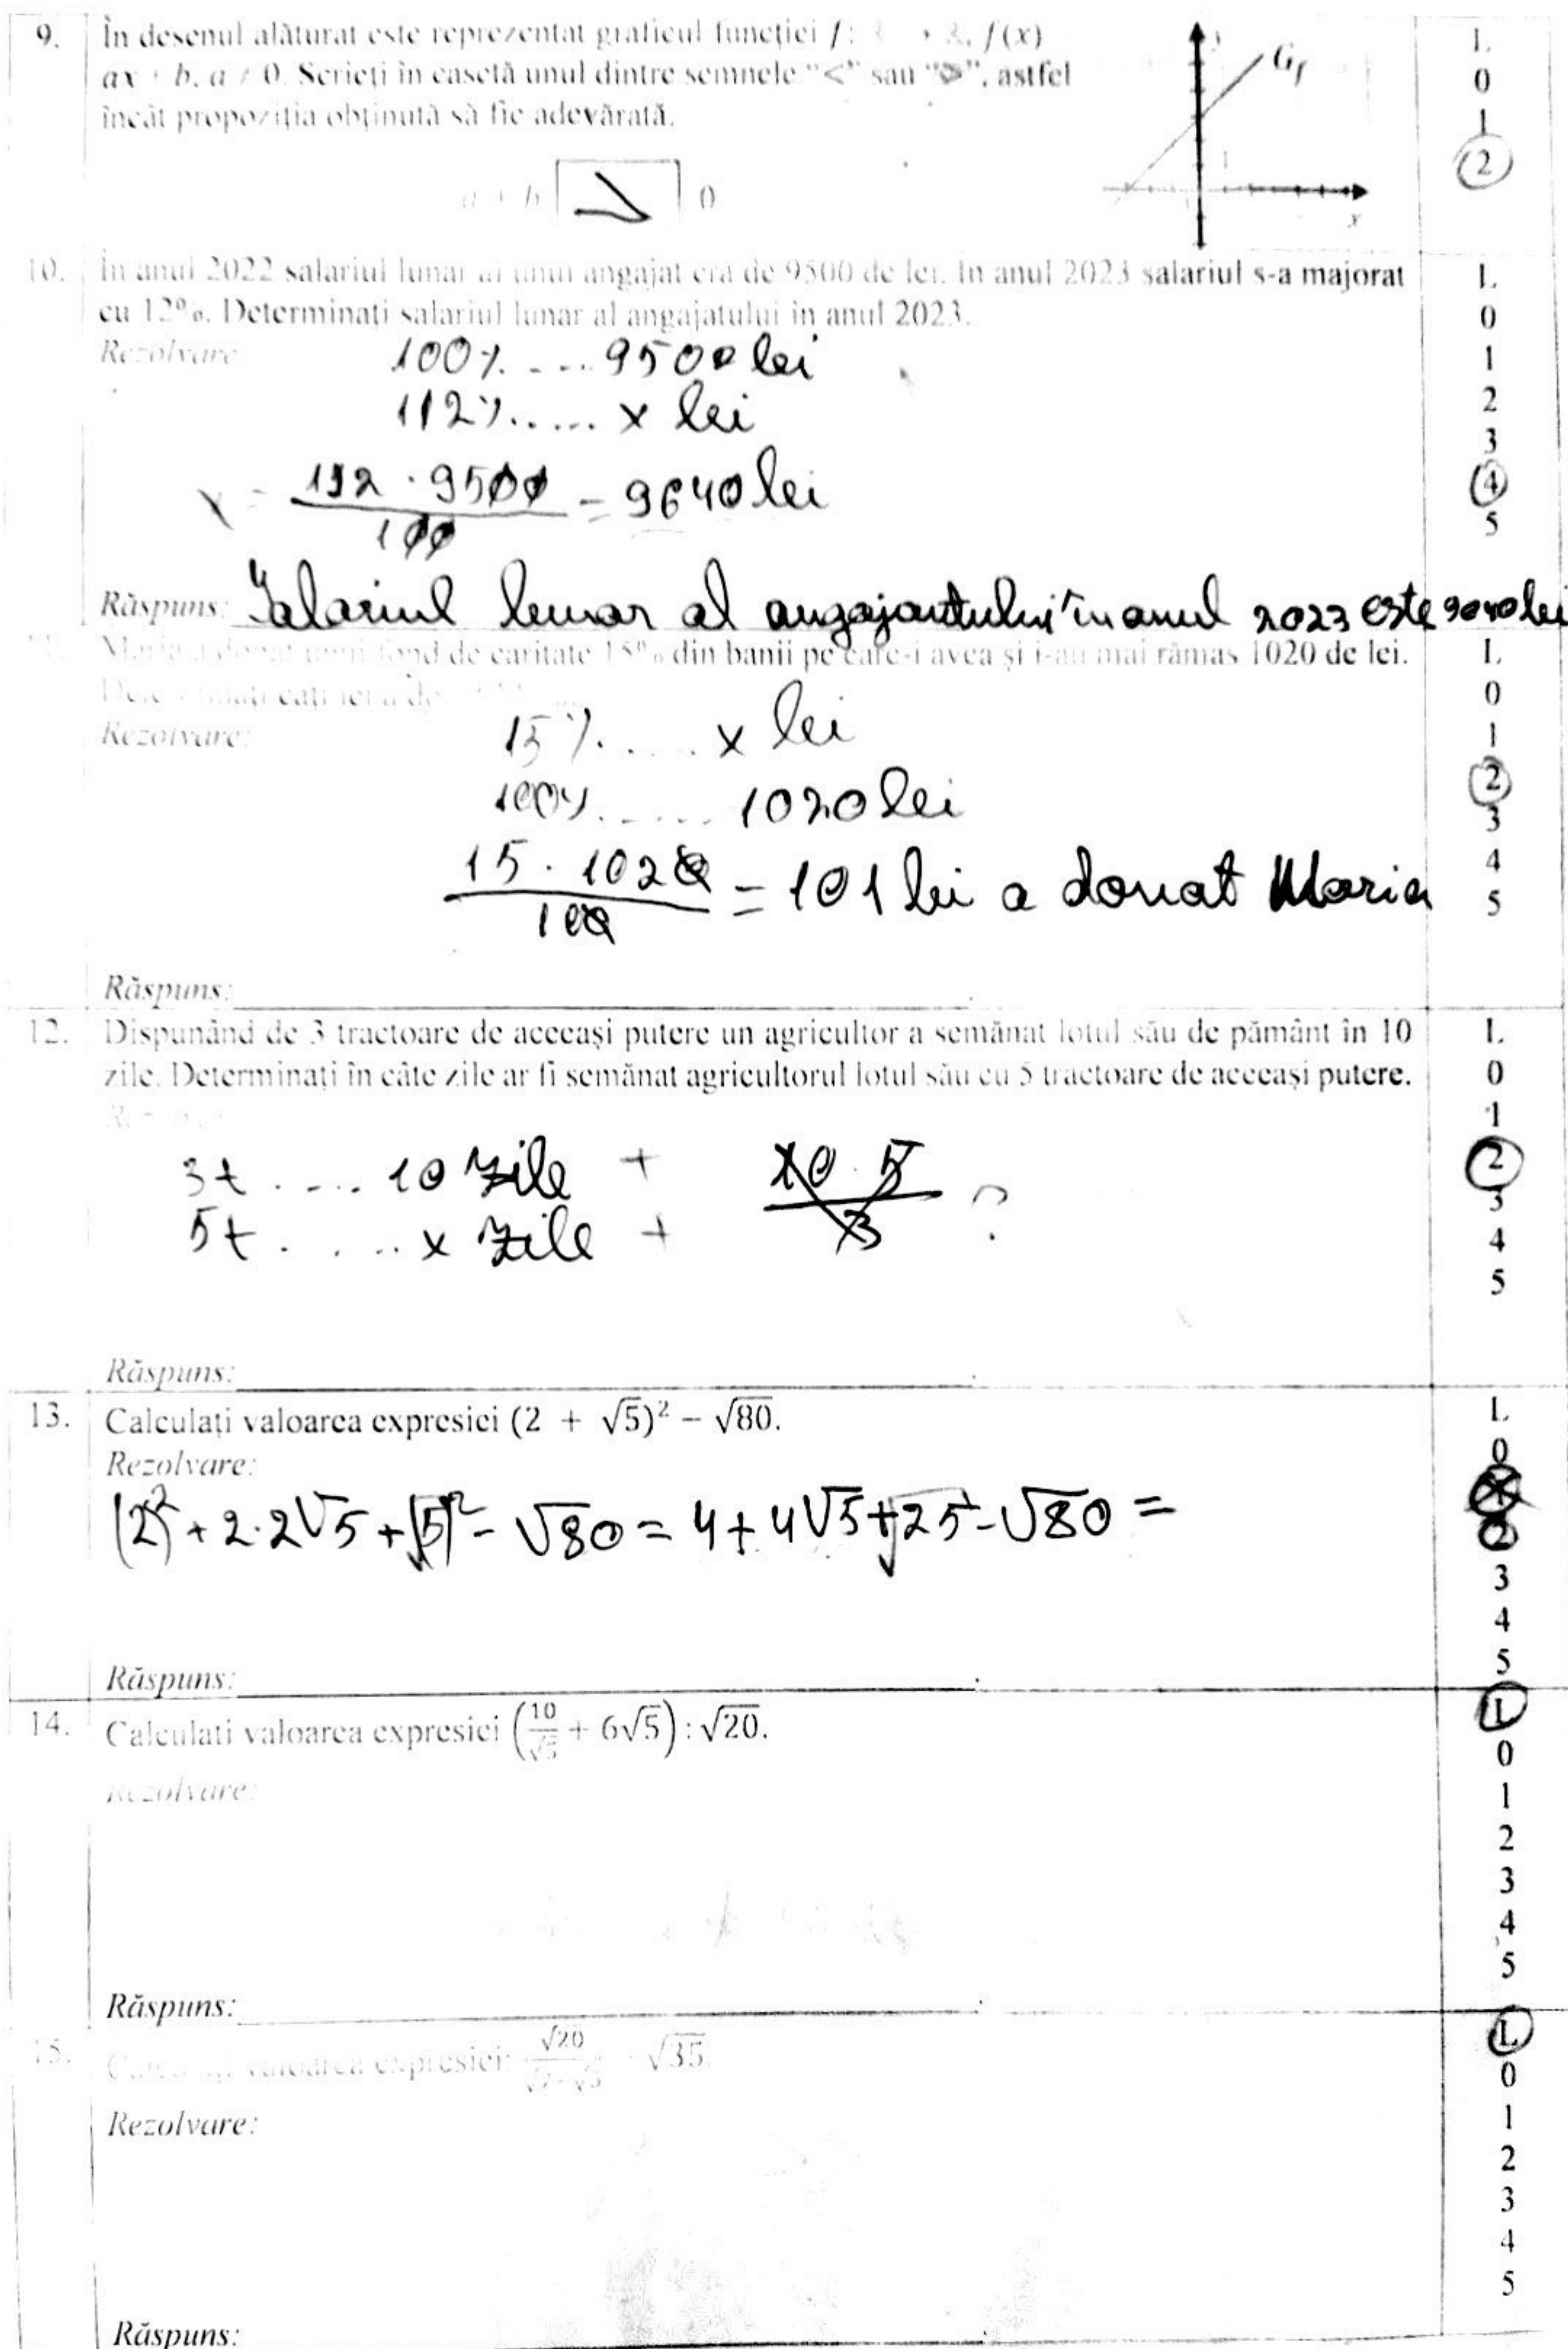 9. În desenul alăturat este reprezentat graficul funcției f: f(x)
ax + b, a ≠ 0. Scrieți în casetă unul dintre semnele "<" sau ">", astfel
încât propoziția obținută să fie adevărată.
G_f
x
1
b > 0
L
0
1
2
10. În anul 2022 salariul lunar al unui angajat era de 9500 de lei. În anul 2023 salariul s-a majorat
cu 12%. Determinați salariul lunar al angajatului în anul 2023.
Rezolvare
100% .... 9500 lei
112% ..... x lei
x = 112 · 9500 / 100 = 9640 lei
Răspuns: Salariul lunar al angajatului în anul 2023 este lei
L
0
1
2
3
4
5
Maria a donat unui fond de caritate 15% din banii pe care-i avea și i-au mai rămas 1020 de lei.
Rezolvare:
15% ..... x lei
100% ..... 1020 lei
15 · 1020 / 100 = 101 lei a donat Maria
Răspuns:
L
0
1
2
3
4
5
12. Dispunând de 3 tractoare de aceeași putere un agricultor a semănat lotul său de pământ în 10
zile. Determinați în câte zile ar fi semănat agricultorul lotul său cu 5 tractoare de aceeași putere.
3t .... 10 zile + 10 · 5 / 3 ?
5t ..... x zile +
Răspuns:
L
0
1
2
3
4
5
13. Calculați valoarea expresiei (2 + √5)² − √80.
Rezolvare:
(2)² + 2·2√5 + (√5)² - √80 = 4 + 4√5 + √25 - √80 =
Răspuns:
L
0
1
2
3
4
5
14. Calculati valoarea expresiei (10/√5 + 6√5) : √20.
Rezolvare:
Răspuns:
L
0
1
2
3
4
5
15. valoarea expresiei: √20 √35
Rezolvare:
Răspuns:
L
0
1
2
3
4
5